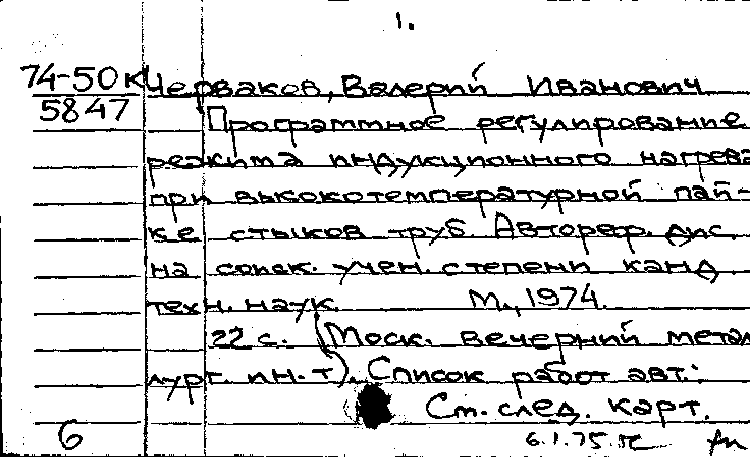 1.
74-50к Черваков, Валерий Иванович
5847
Программное регулирование
режима индукционного нагрева
при высокотемпературной пай-
ке стыков труб. Автореф. дис.
на соиск. учен. степени канд
техн. наук. М., 1974.
22 с. (Моск. вечерний метал
лург. ин-т). Список работ авт.:
См. след. карт.
6 6.1.75.